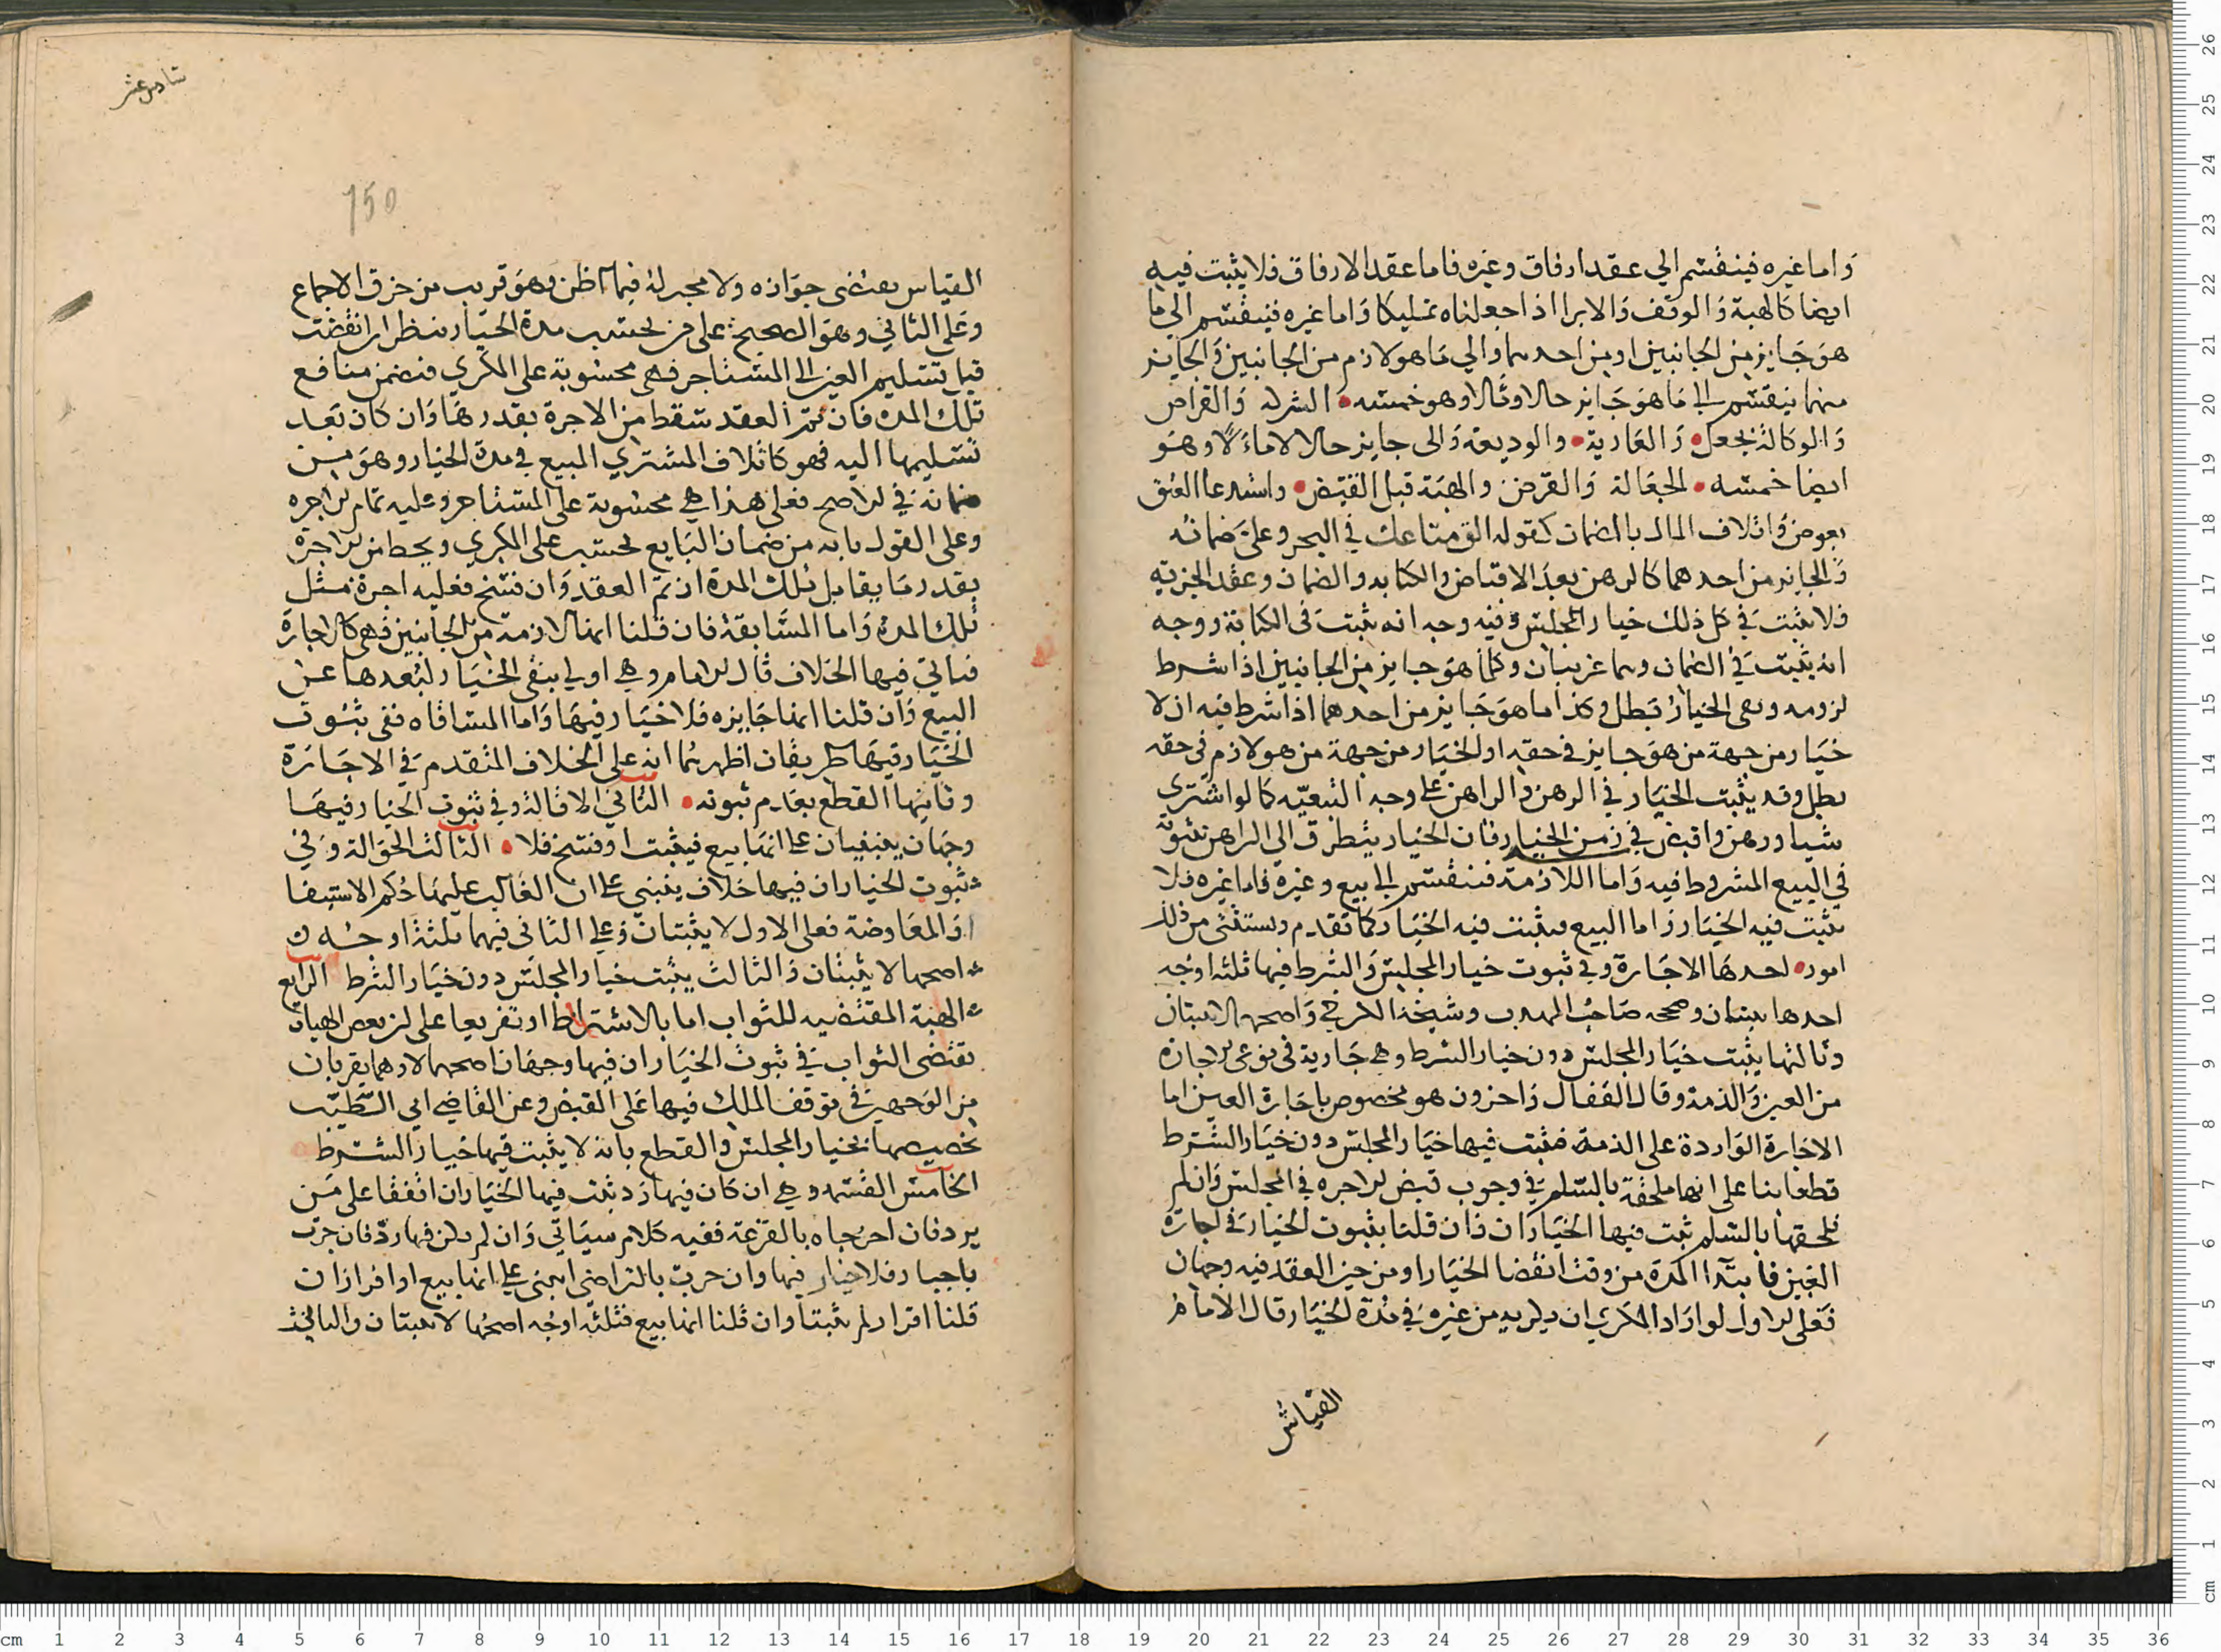 واما غيره فينقسم الي عقد ارفاق وغيره فاما عقد الارفاق فلا يثبت فيه
ايضا كالهبة والوقف والابرا اذا جعلناه تمليكا واما غيره فينقسم الي ما
هو جايز من الجانبين او من احدهما والي ما هو لازم من الجانبين والجايز
منهما ينقسم الي ما هو جايز حالا ومالا وهو خمسه الشركه والقراض
والوكالة بجعل والعارية والوديعة والى جايز حالا لا مالا وهو
ايضا خمسه الجعالة والقرض والهبة قبل القبض واستدعا العتق
بعوض واتلاف المال بالضمان كقوله الق متاعك في البحر وعلي ضمانه
والجايز من احدهما كالرهن بعد الاقباض والكتابه والضمان وعقد الجزية
فلا يثبت في كل ذلك خيار المجلس وفيه وجه انه يثبت في الكتابة ووجه
انه يثبت في الضمان وهما غريبان وكلما هو جايز من الجانبين اذا شرط
لزومه ونفي الخيار بطل وكذا ما هو جايز من احدهما اذا شرط فيه ان لا
خيار من جهة من هو جايز في حقه او الخيار من جهة من هو لازم في حقه
بطل وقد يثبت الخيار في الرهن والراهن على وجه التبعيه كما لو اشترى
شيا ورهن واقبض في زمن الخيار فان الخيار يتطرق الي الراهن بثبوته
في البيع المشروط فيه واما اللازمة فينقسم الى بيع وغيره فاما غيره فلا
يثبت فيه الخيار واما البيع فيثبت فيه الخيار كما تقدم ويستثنى من ذلك
امور احدها الاجارة وفي ثبوت خيار المجلس والشرط فيها ثلثه اوجه
احدها يثبتان وصححه صاحب المهذب وشيخه الكرخي واصحهما لا يثبتان
وثالثها يثبت خيار المجلس دون خيار الشرط وهي جارية في نوعي الاجاره
من العين والذمة وقال القفال واخرون هو مخصوص باجارة العين اما
الاجارة الواردة على الذمة فيثبت فيها خيار المجلس دون خيار الشرط
قطعا بنا على انها ملحقة بالسلم في وجوب قبض الاجره في المجلس وان لم
نلحقها بالسلم ثبت فيها الخياران وان قلنا بثبوت الخيار في اجارة
العين فابتدا المدة من وقت انقضا الخيار او من حين العقد فيه وجهان
فعلى الاول لو اراد المكري ان يكريه من غيره في مدة الخيار قال الامام
القياس
سادس عشر
150
القياس يقتضى جوازه ولا مجيز له فيما اظن وهو قريب من خرق الاجماع
وعلى الثاني وهو الصحيح على من يحسب مدة الخيار ينظر ان انقضت
قبل تسليم العين الى المستاجر فهي محسوبة على المكري فيضمن منافع
تلك المده فان تم العقد سقط من الاجرة بقدرها وان كان بعد
تسليمها اليه فهو كاتلاف المشتري المبيع في مدة الخيار وهو من
ضمانه في الاصح فعلى هذا هي محسوبة على المستاجر وعليه تمام الاجره
وعلى القول بانه من ضمان البايع تحسب على المكري ويحط من الاجرة
بقدر ما يقابل تلك المدة ان تم العقد وان فسخ فعليه اجرة مثل
تلك المدة واما المسابقة فان قلنا انها لازمة من الجانبين فهي كالاجارة
فياتي فيها الخلاف قال الامام وهي اولي بنفى الخيار لبعدها عن
البيع وان قلنا انها جايزه فلا خيار فيها واما المساقاه ففي ثبوت
الخيار فيها طريقان اظهرهما انه على الخلاف المتقدم في الاجارة
وثانيهما القطع بعدم ثبوته الثاني الاقالة وفي ثبوت الخيار فيها
وجهان يبنيان على انها بيع فيثبت او فسخ فلا الثالث الحوالة وفي
ثبوت الخياران فيها خلاف يبنى على ان الغالب عليها حكم الاستيفا
او المعاوضة فعلى الاول لا يثبتان وعلى الثاني فيها ثلثة اوجه
اصحها لا يثبتان والثالث يثبت خيار المجلس دون خيار الشرط الرابع
الهبة المقتضيه للثواب اما بالاشتراط او تفريعا على ان بعض الهبات
تقتضى الثواب في ثبوت الخياران فيها وجهان اصحهما لا وهما يقربان
من الوجهين في توقف الملك فيها على القبض وعن القاضي ابي الطيب
تخصيصها بخيار المجلس والقطع بانه لا يثبت فيها خيار الشرط
الخامس القسمه وهي ان كان فيها رد ثبت فيها الخياران اتفقا على من
يرد فان اخرجاه بالقرعة ففيه كلام سياتي وان لم يكن فيها رد فان جرت
باجبار فلا خيار فيها وان جرت بالتراضى انبنى على انها بيع او افراز ان
قلنا افراز لم يثبتا وان قلنا انها بيع فثلثه اوجه اصحها لا يثبتان والثاني